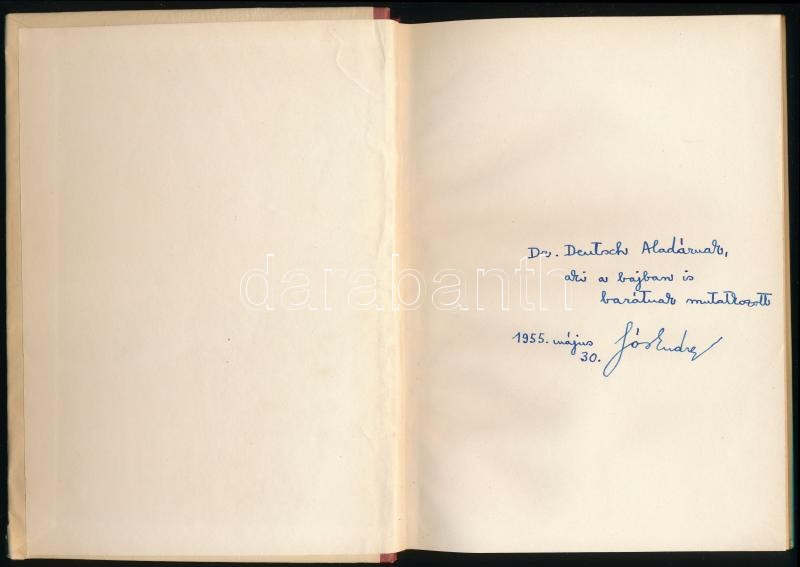 Dr. Deutsch Aladárnak,
aki a bajban is
barátnak mutatkozott
1955. május
30.
Sós Endre
darabanth